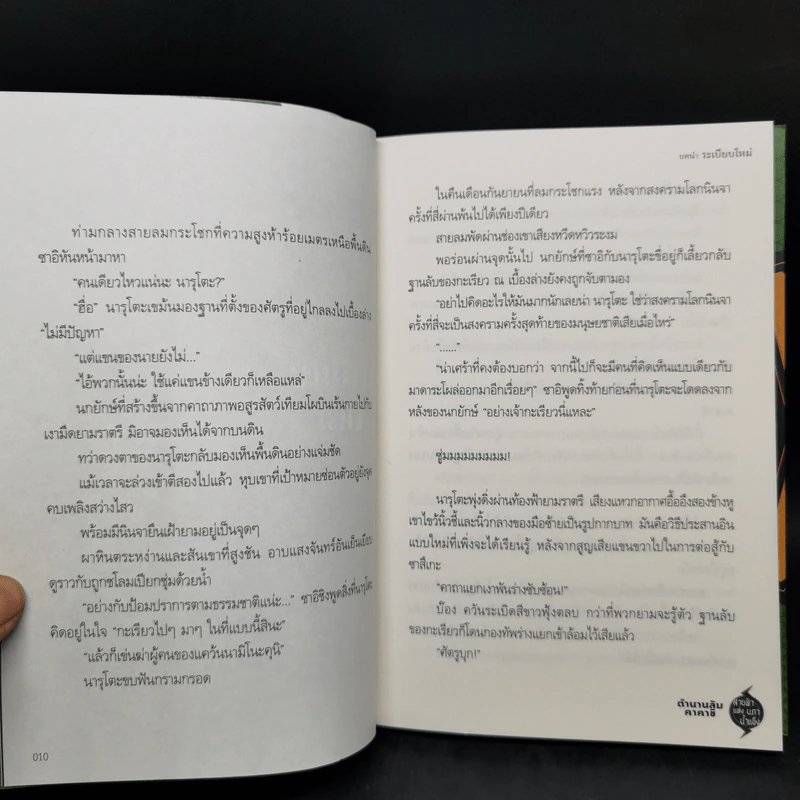 ท่ามกลางสายลมกระโชกที่ความสูงห้าร้อยเมตรเหนือพื้นดิน
ซาอิหันหน้ามาหา
“คนเดียวไหวแน่นะ นารุโตะ?”
“ฮื่อ” นารุโตะเขม้นมองฐานที่ตั้งของศัตรูที่อยู่ไกลลงไปเบื้องล่าง
“ไม่มีปัญหา”
“แต่แขนของนายยังไม่...”
“ไอ้พวกนั้นน่ะ ใช้แค่แขนข้างเดียวก็เหลือแหล่”
นกยักษ์ที่สร้างขึ้นจากคาถาภาพอสูรสัตว์เทียมโผบินเร้นกายไปกับ
เงามืดยามราตรี มิอาจมองเห็นได้จากบนดิน
ทว่าดวงตาของนารุโตะกลับมองเห็นพื้นดินอย่างแจ่มชัด
แม้เวลาจะล่วงเข้าตีสองไปแล้ว หุบเขาที่เป้าหมายซ่อนตัวอยู่ยังจุด
คบเพลิงสว่างไสว
พร้อมมีนินจายืนเฝ้ายามอยู่เป็นจุดๆ
ผาหินตระหง่านและสันเขาที่สูงชัน อาบแสงจันทร์อันเย็นเยียบ
ดูราวกับถูกชโลมเปียกชุ่มด้วยน้ำ
“อย่างกับป้อมปราการตามธรรมชาติแน่ะ...” ซาอิชิงพูดสิ่งที่นารุโตะ
คิดอยู่ในใจ “กะเรียวไปๆ มาๆ ในที่แบบนี้สินะ”
“แล้วก็เข่นฆ่าผู้คนของแคว้นนามิโนะคุนิ”
นารุโตะขบฟันกรามกรอด
010
บทนำ ระเบียบใหม่
ในคืนเดือนกันยายนที่ลมกระโชกแรง หลังจากสงครามโลกนินจา
ครั้งที่สี่ผ่านพ้นไปได้เพียงปีเดียว
สายลมพัดผ่านช่องเขาเสียงหวีดหวิวระงม
พอร่อนผ่านจุดนั้นไป นกยักษ์ที่ซาอิกับนารุโตะขี่อยู่ก็เลี้ยวกลับ
ฐานลับของกะเรียว ณ เบื้องล่างยังคงถูกจับตามอง
“อย่าไปคิดอะไรให้มันมากนักเลยน่า นารุโตะ ใช่ว่าสงครามโลกนินจา
ครั้งที่สี่จะเป็นสงครามครั้งสุดท้ายของมนุษยชาติเสียเมื่อไหร่”
“......”
“น่าเศร้าที่คงต้องบอกว่า จากนี้ไปก็จะมีคนที่คิดเห็นแบบเดียวกับ
มาดาระโผล่ออกมาอีกเรื่อยๆ” ซาอิพูดทิ้งท้ายก่อนที่นารุโตะจะโดดลงจาก
หลังของนกยักษ์ “อย่างเจ้ากะเรียวนี่แหละ”
ซู่มมมมมมมม!
นารุโตะพุ่งดิ่งผ่านท้องฟ้ายามราตรี เสียงแหวกอากาศอื้ออึงสองข้างหู
เขาไขว้นิ้วชี้และนิ้วกลางของมือซ้ายเป็นรูปกากบาท มันคือวิธีประสานอิน
แบบใหม่ที่เพิ่งจะได้เรียนรู้ หลังจากสูญเสียแขนขวาไปในการต่อสู้กับ
ซาสึเกะ
“คาถาแยกเงาพันร่างซับซ้อน!”
บ๊อง ควันระเบิดสีขาวฟุ้งตลบ กว่าที่พวกยามจะรู้ตัว ฐานลับ
ของกะเรียวก็โดนกองทัพร่างแยกเข้าล้อมไว้เสียแล้ว
“ศัตรูบุก!”
ตำนานลับ
คาคาชิ